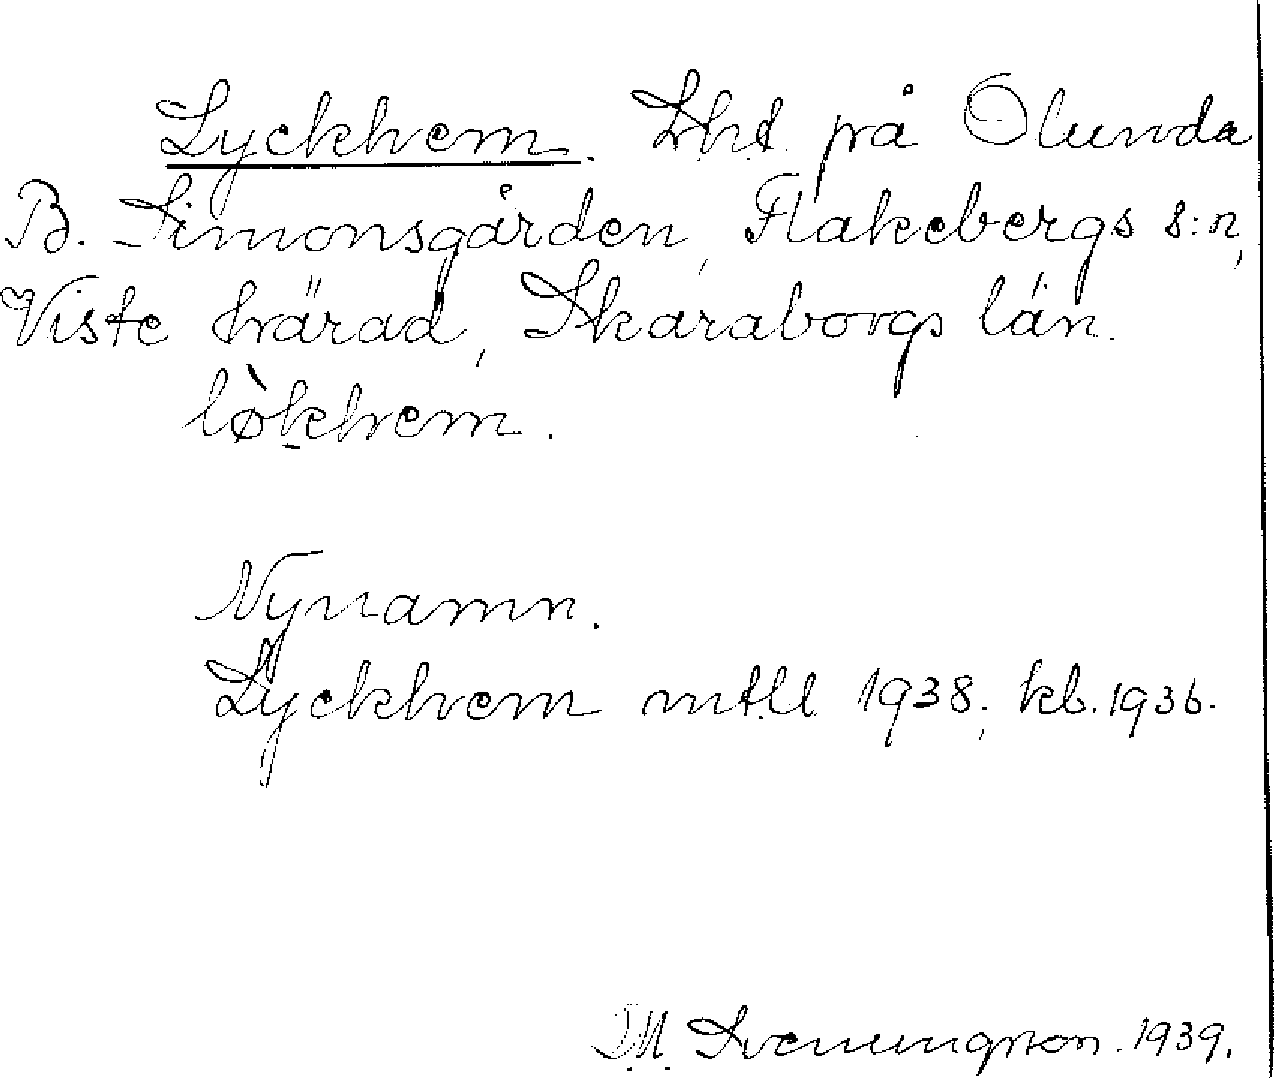 Lyckhem. Lht på Olunda
B. Simonsgården, Flakebergs s:n,
Viste härad, Skaraborgs län.
lø̀khem.
Nynamn.
Lyckhem mtll 1938; kb. 1936.
M. Svenungson. 1939.